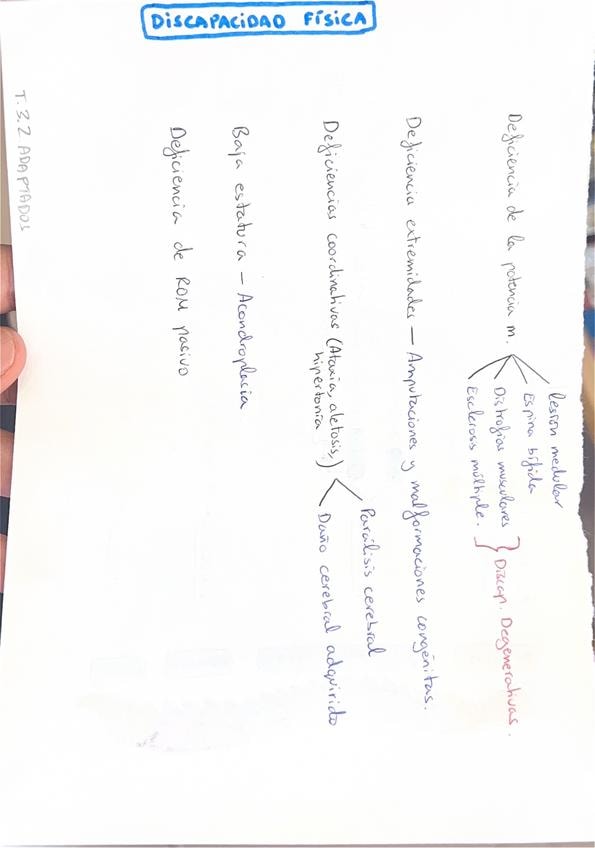 DISCAPACIDAD FÍSICA
T. 3.2 ADAPTADOS
Deficiencia de la potencia m.
lesión medular
Espina bífida
Distrofias musculares
Esclerosis múltiple.
Discap. Degenerativas.
Deficiencia extremidades – Amputaciones y malformaciones congénitas.
Deficiencias coordinativas (Ataxia, atetosis,
hipertonía)
Parálisis cerebral
Daño cerebral adquirido
Baja estatura – Acondroplasia
Deficiencia de ROM pasivo